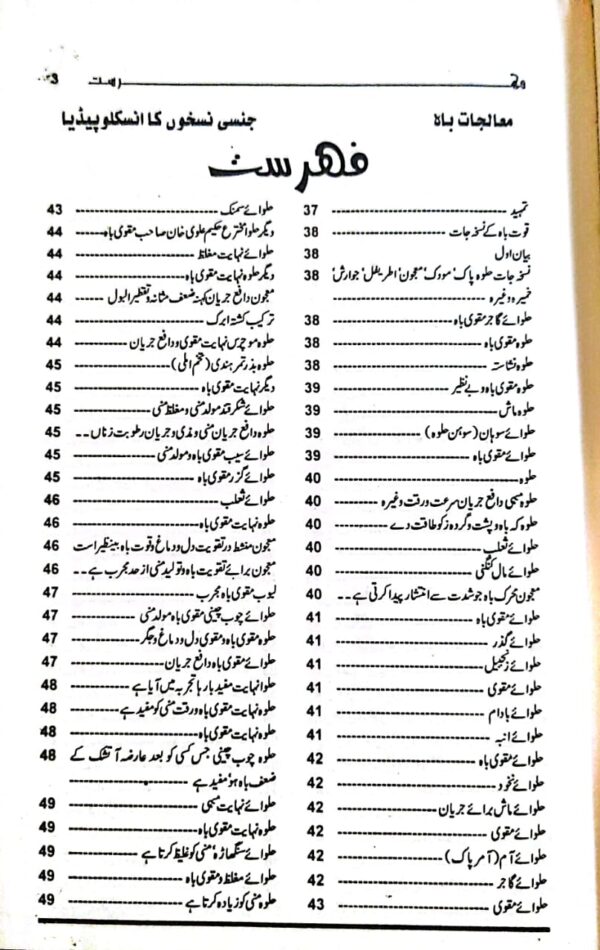 فہرست 3
معالجات باہ
جنسی نسخوں کا انسکلوپیڈیا
فہرست
تمہید 37
قوت باہ کے نسخہ جات 38
بیان اول 38
نسخہ جات حلوہ پاک' مودک' معجون' اطریفل' جوارش' 38
خمیرہ وغیرہ
حلوائے گاجر مقوی باہ 38
حلوہ مقوی باہ 38
حلوہ نشاستہ 38
حلوہ مقوی باہ و بے نظیر 39
حلوہ ماش 39
حلوائے سوہان (سوہن حلوہ) 39
حلوائے مقوی باہ 39
حلوہ 40
حلوہ سہمی دافع جریان سرعت ورقت وغیرہ 40
حلوہ کہ باہ و پشت و گردہ زکو طاقت دے 40
حلوائے ثعلب 40
حلوائے مال کنگنی 40
معجون محرک باہ جو شدت سے انتشار پیدا کرتی ہے 40
حلوائے مقوی باہ 41
حلوائے گذر 41
حلوائے زنجبیل 41
حلوائے مقوی 41
حلوائے بادام 41
حلوائے انبہ 41
حلوائے مقوی باہ 42
حلوائے نخود 42
حلوائے ماش برائے جریان 42
حلوائے مقوی 42
حلوائے آم (آمر پاک) 42
حلوائے گاجر 42
حلوائے مقوی 43
حلوائے سمنک 43
دیگر حلوا اختراع حکیم علوی خان صاحب مقوی باہ 44
حلوائے نہایت مغلظ 44
دیگر حلوہ نہایت مقوی باہ 44
معجون دافع جریان کہنہ ضعف مثانہ و تقطیر البول 44
ترکیب کشتہ ابرک 44
حلوہ موچرس نہایت مقوی و دافع جریان 44
حلوہ بذر تمر ہندی (تخم املی) 45
دیگر نہایت مقوی باہ 45
حلوائے شکر قند مولد منی و مغلظ منی 45
حلوہ دافع جریان منی و مذی و جریان رطوبت زناں 45
حلوائے سیب مقوی باہ و مولد منی 45
حلوائے گزر مقوی باہ 45
حلوائے ثعلب 46
حلوہ نہایت مقوی باہ 46
معجون منشط در تقویت دل و دماغ و قوت باہ بینظیر است 46
معجون برائے تقویت باہ و تولید منی از حد مجرب ہے 46
لبوب مقوی باہ مجرب 47
حلوائے چوب چینی مقوی باہ مولد منی 47
حلوہ مقوی باہ و مقوی دل و دماغ و جگر 47
حلوائے مقوی باہ دافع جریان 47
حلوا نہایت مفید بارہا تجربہ میں آیا ہے 48
حلوہ نہایت مقوی باہ و رقت منی کو مفید ہے 48
حلوہ نہایت مقوی باہ 48
حلوہ چوب چینی جس کسی کو بعد عارضہ آتشک کے 48
ضعف باہ ہو' مفید ہے
حلوائے نہایت سہمی 49
حلوہ نہایت مقوی باہ 49
حلوائے سنگھاڑہ' منی کو غلیظ کرتا ہے 49
حلوائے مغلظ و مقوی باہ 49
حلوہ منی کو زیادہ کرتا ہے 49